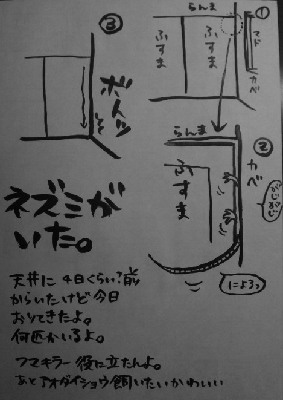 ①
らんま
ふすま
ふすま
マド
カベ
②
らんま
ふすま
カベ
にょろっ
③
ボトッ
ネズミが
いた。
天井に4日くらい?前
からいたけど今日
おりてきたよ。
何匹かいるよ。
フマキラー役に立たんよ。
あとアオダイショウ飼いたいかわいい